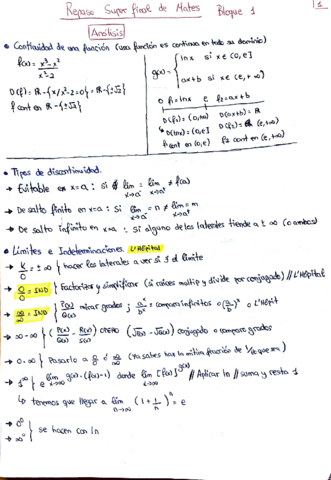 Repaso Super final de Mates Bloque 1
1
Análisis
• Continuidad de una función (una función es continua en todo su dominio)
f(x) = x³-x² / x²-2
D(f) = ℝ - {x/x²-2=0} = ℝ - {±√2}
f cont en ℝ - {±√2}
g(x) = { lnx si x ∈ (0,e]
ax+b si x ∈ (e,+∞)
f₁ = lnx e f₂ = ax+b
D(f₁) = (0,+∞) D(ax+b) = ℝ
D(lnx) = (0,e] D(f₂) = (e,+∞)
f₁ cont en (0,e) f₂ cont en (e,+∞)
• Tipos de discontinuidad.
→ Evitable en x=a : Si ∃ lim x→a⁻ = lim x→a⁺ ≠ f(a)
→ De salto finito en x=a : Si lim x→a⁻ = n ≠ lim x→a⁺ = m
→ De salto infinito en x=a : Si alguno de los laterales tiende a ±∞ (o ambos)
• Límites e Indeterminaciones. L'Hôpital
→ K/0 = ±∞ } hacer los laterales a ver si ∃ el límite
→ 0/0 = IND } Factorizar y simplificar (si raíces multip y divide por conjugado) // L'Hôpital
→ ∞/∞ = IND } P(x)/Q(x) mirar grados ;
→ ∞-∞ } ( P(x)/Q(x) - R(x)/S(x) ) (√f(x) - √g(x)) conjugado o comparo grados
→ 0·∞ } Pasarlo a 0/0 ó ∞/∞
→ 1^∞ } e^lim x→∞ g(x)·(f(x)-1) donde lim x→∞ [f(x)]^g(x) // Aplicar ln // suma y resta 1
↳ tenemos que llegar a lim n→∞ (1 + 1/n)^n = e
→ 0⁰
→ ∞⁰ } se hacen con ln